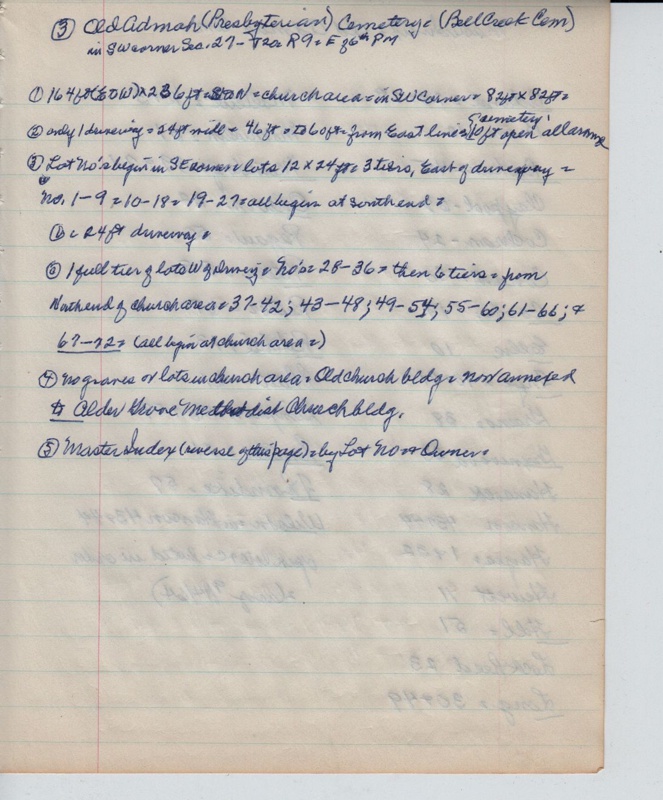 ③ Old Admah (Presbyterian) Cemetery = (Bell Creek Cem)
in SW corner Sec. 27 - T20 R9 = E of 6th PM
① 164 ft (E to W) x 236 ft = S to N = church area = in SW corner = 82 ft x 82 ft =
② only 1 driveway = 24 ft wide = 46 ft = to 60 ft = from East line = 10 ft open all around cemetery.
③ Lot No's begin in SE corner = lots 12 x 24 ft = 3 tiers, East of driveway =
No. 1-9 = 10-18 = 19-27 = all begin at south end =
24 ft driveway =
1 full tier of lots W of drivewy = No's = 28-36 = then 6 tiers = from
North end of church area = 37-42; 43-48; 49-54; 55-60; 61-66; &
67-72 = (all begin at church area =)
④ No graves or lots in church area = Old church bldg = now annexed
to Alder Grove Methodist Church bldg.
⑤ Master Index (reverse of this page) = by Lot No & Owner =